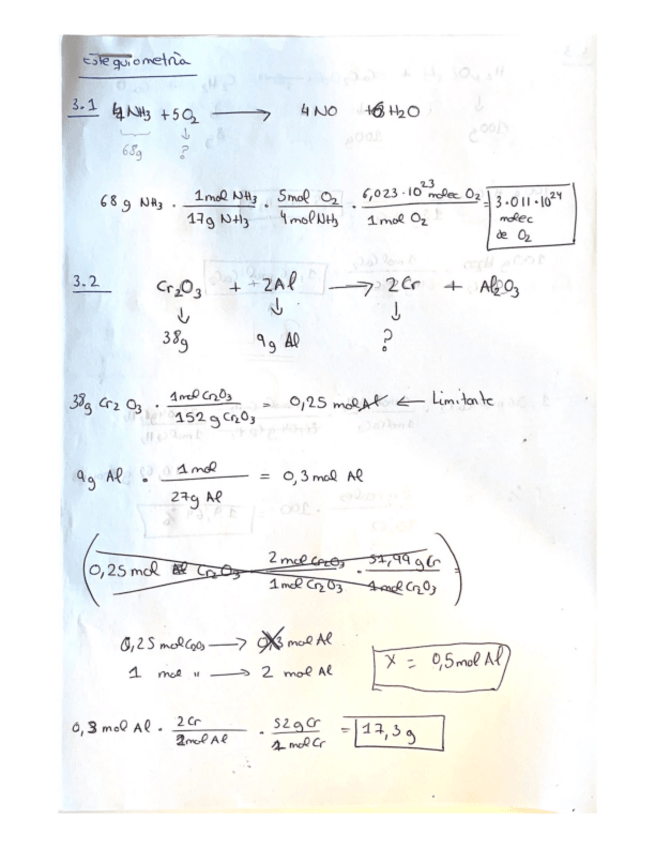 estequiometría
3.1 4NH₃ + 5O₂ ⟶ 4NO + 6H₂O
68g ?
68g NH₃ · 1mol NH₃ / 17g NH₃ · 5mol O₂ / 4molNH₃ · 6,023·10²³ molec O₂ / 1mol O₂ = 3.011·10²⁴ molec de O₂
3.2 Cr₂O₃ + 2Al ⟶ 2Cr + Al₂O₃
38g 9g Al ?
38g Cr₂O₃ · 1mol Cr₂O₃ / 152g Cr₂O₃ = 0,25 mol ← Limitante
9g Al · 1mol / 27g Al = 0,3 mol Al
(0,25 mol Cr₂O₃ · 2mol Cr₂O₃ / 1mol Cr₂O₃ · 51,99 g Cr / 1mol Cr₂O₃ =)
0,25 mol ⟶ X mol Al
1 mol " ⟶ 2 mol Al X = 0,5mol Al
0,3 mol Al · 2Cr / 2mol Al · 52g Cr / 1molCr = 17,3g